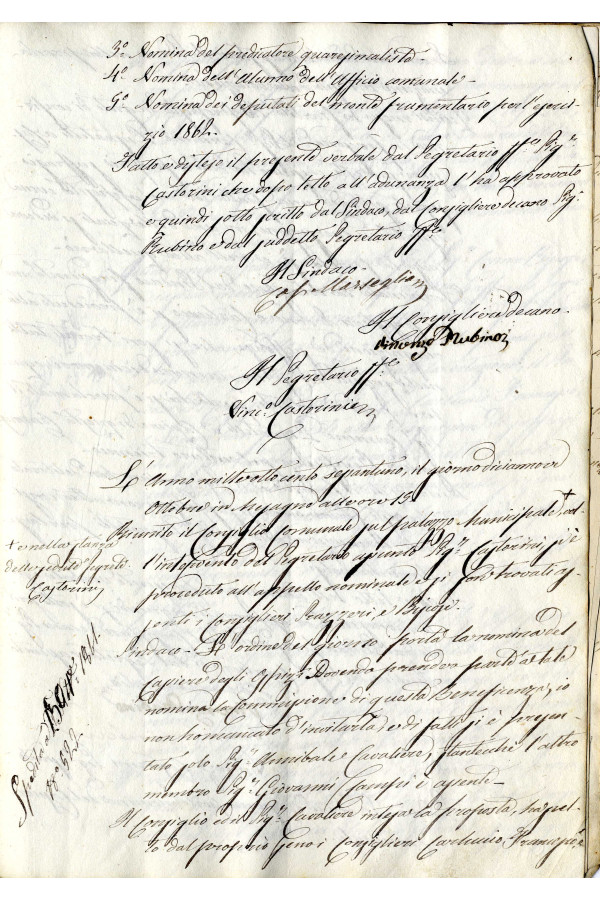 3.° Nomina del predicatore quaresimalista.
4.° Nomina dell'Alunno dell'Ufficio comunale.
5.° Nomina dei deputati del monte frumentario per l'eserci-
zio 1862.
Fatto e disteso il presente verbale dal Segretario ff.e Sig.r
Castorini che dopo letto all'adunanza l'ha approvato
e quindi sottoscritto dal Sindaco, dal Consigliere decano Sig.
Rubino e dal suddetto Segretario ff.e
Il Sindaco
Il Consigliere decano
Vincenzo Rubino
Il Segretario ff.e
Vinc.o Castorini
L'Anno mille ottocento sessantuno, il giorno diciannove
Ottobre in Mesagne alle ore 15
Riunito il Consiglio Comunale sul palazzo Municipale, + col-
l'intervento del Segretario assunto Sig.r Castorini, si è
proceduto all'appello nominale e si sono trovati as-
senti i Consiglieri e
Sindaco - L'ordine del giorno porta la nomina del
Cassiere degli Ospizi. Dovendo prender parte a tale
nomina la Commissione di questa Beneficenza, io
non ho mancato d'invitarla, e di fatti si è presen-
tato solo Sig.r Annibale Cavaliere, stanteché l'altro
membro Sig.r Giovanni Campi è assente.
Il Consiglio ed il Sig.r Cavaliere intesa la proposta, ha scel-
to dal proprio seno i Consiglieri Carluccio, Francesco
+ e nella stanza
delle sedute segrete
Castorini
Spedita 1861.
N.° 522